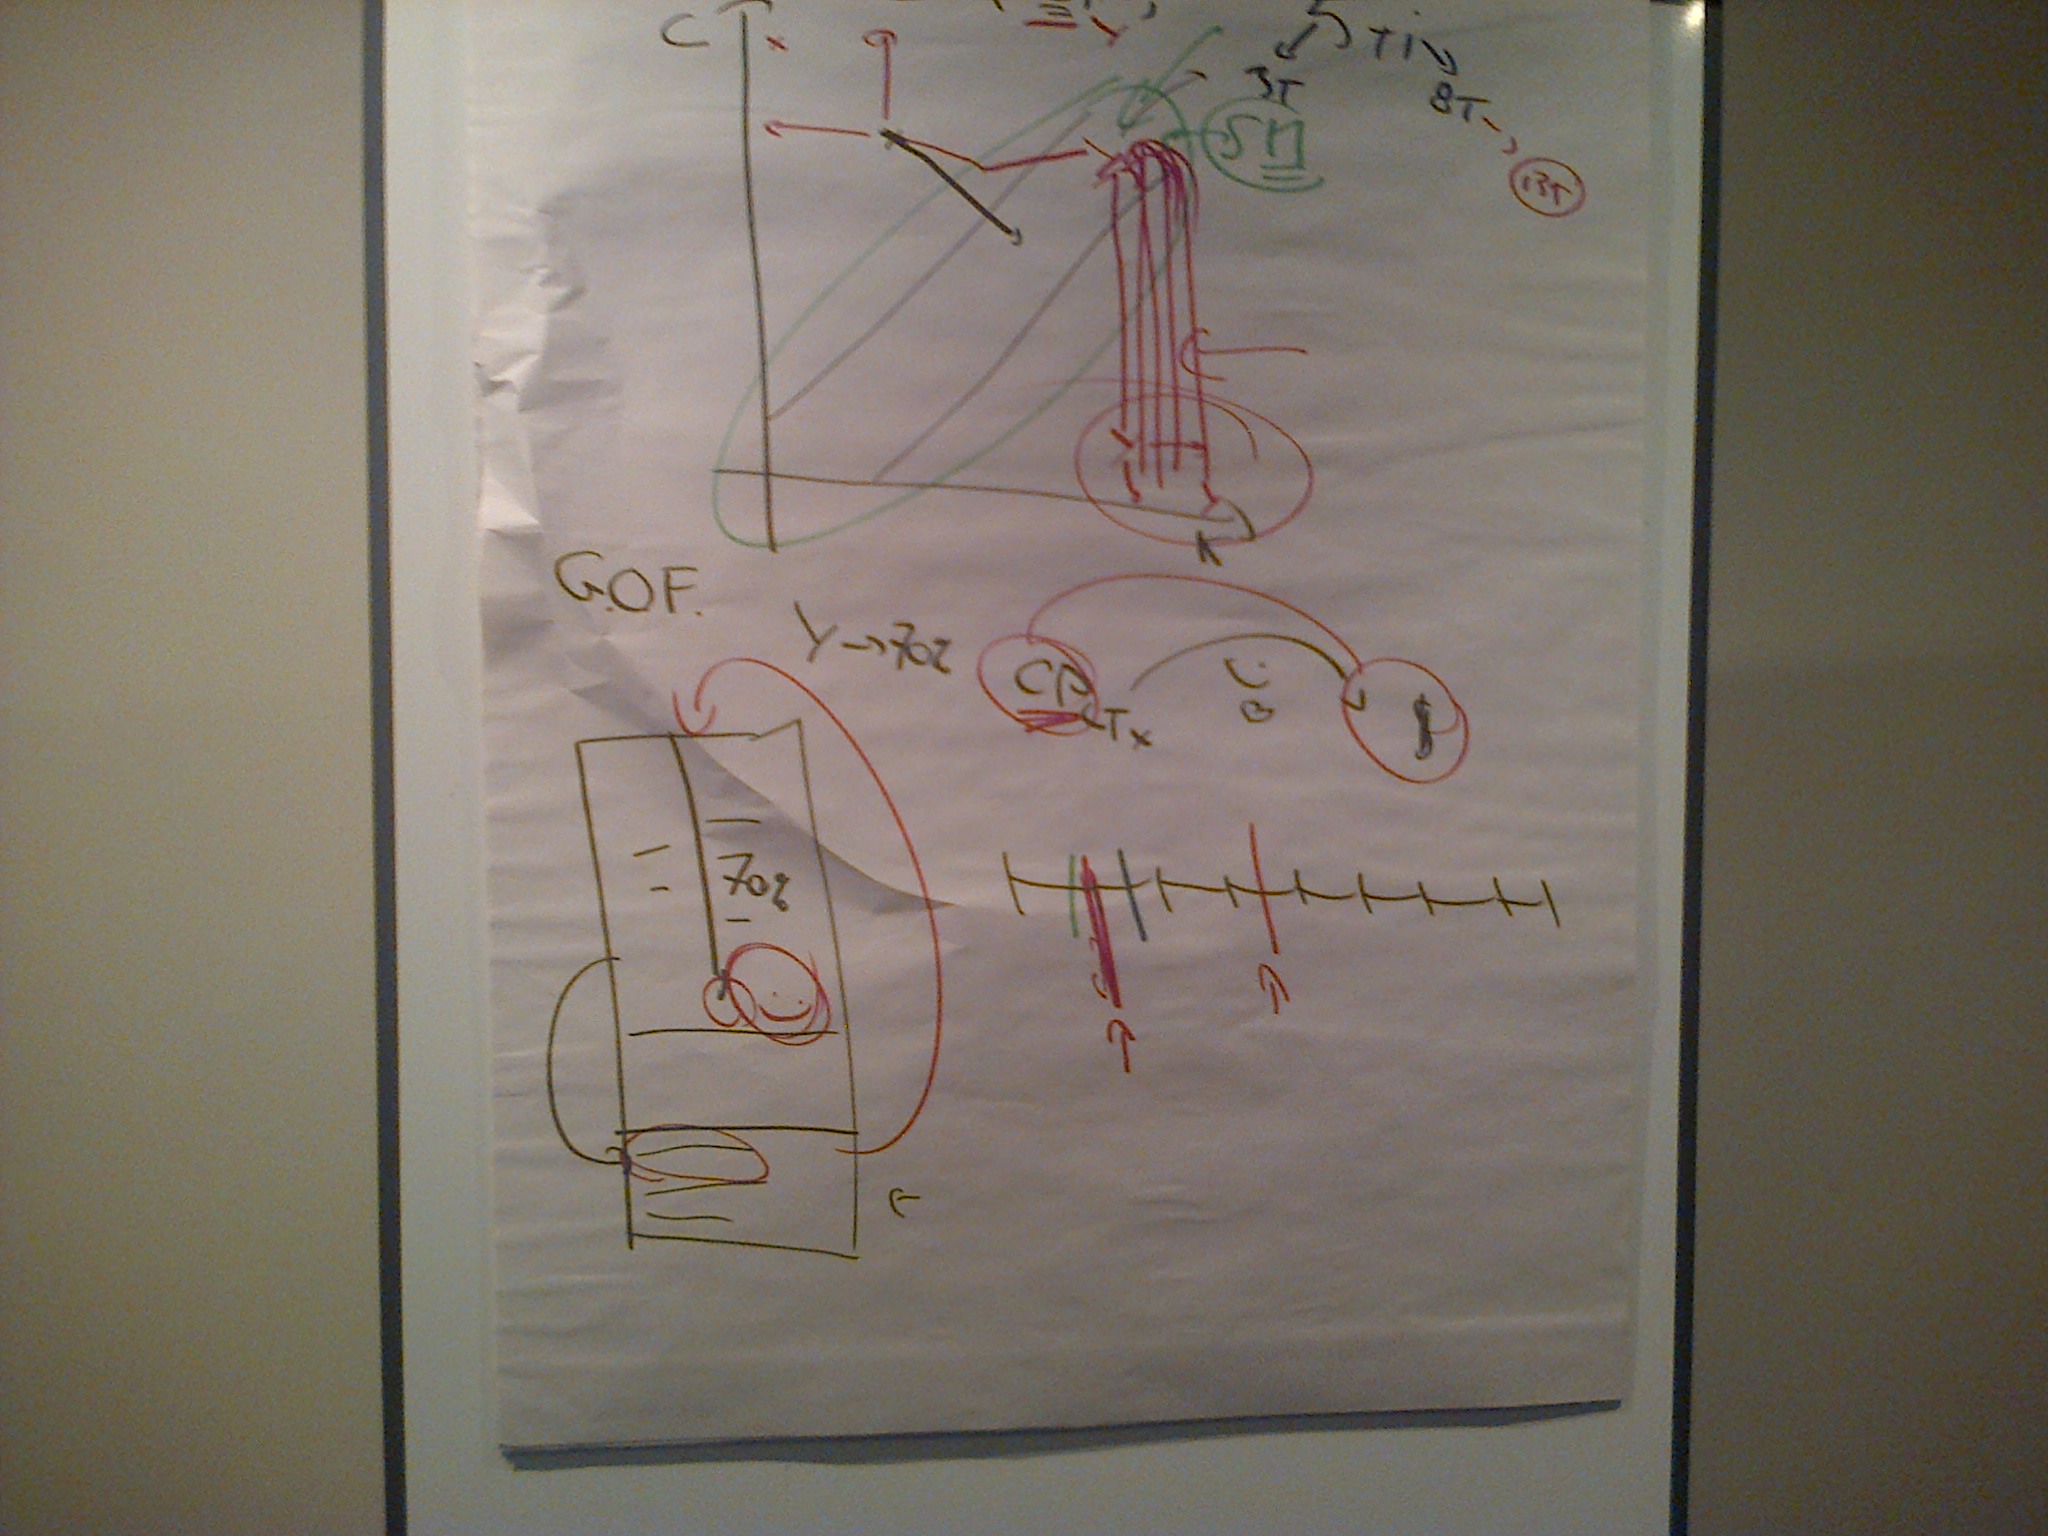 C
Ti
3T
8T
13T
SM
G.O.F.
Y → 70%
CP
Tx
70%